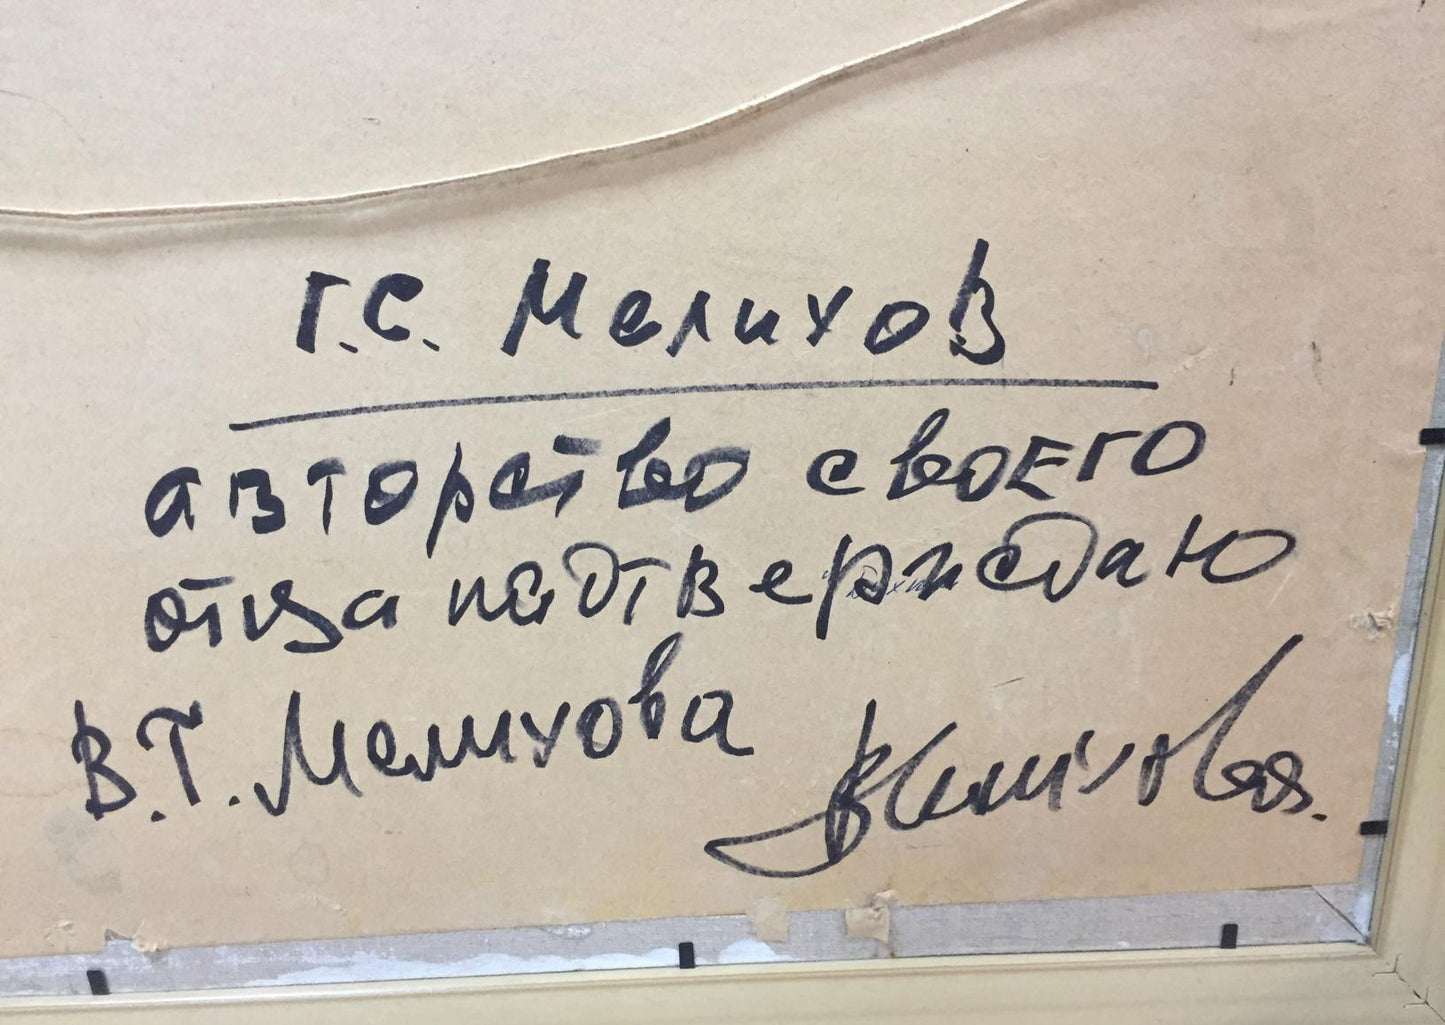 Г.С. Мелихов
авторство своего
отца подтверждаю
В.Т. Мелихова